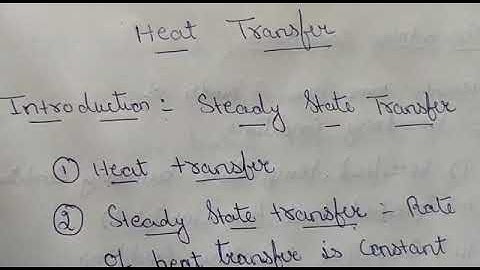 Heat Transfer
Introduction :- Steady State Transfer
① Heat transfer
② Steady State transfer :- Rate
of heat transfer is Constant